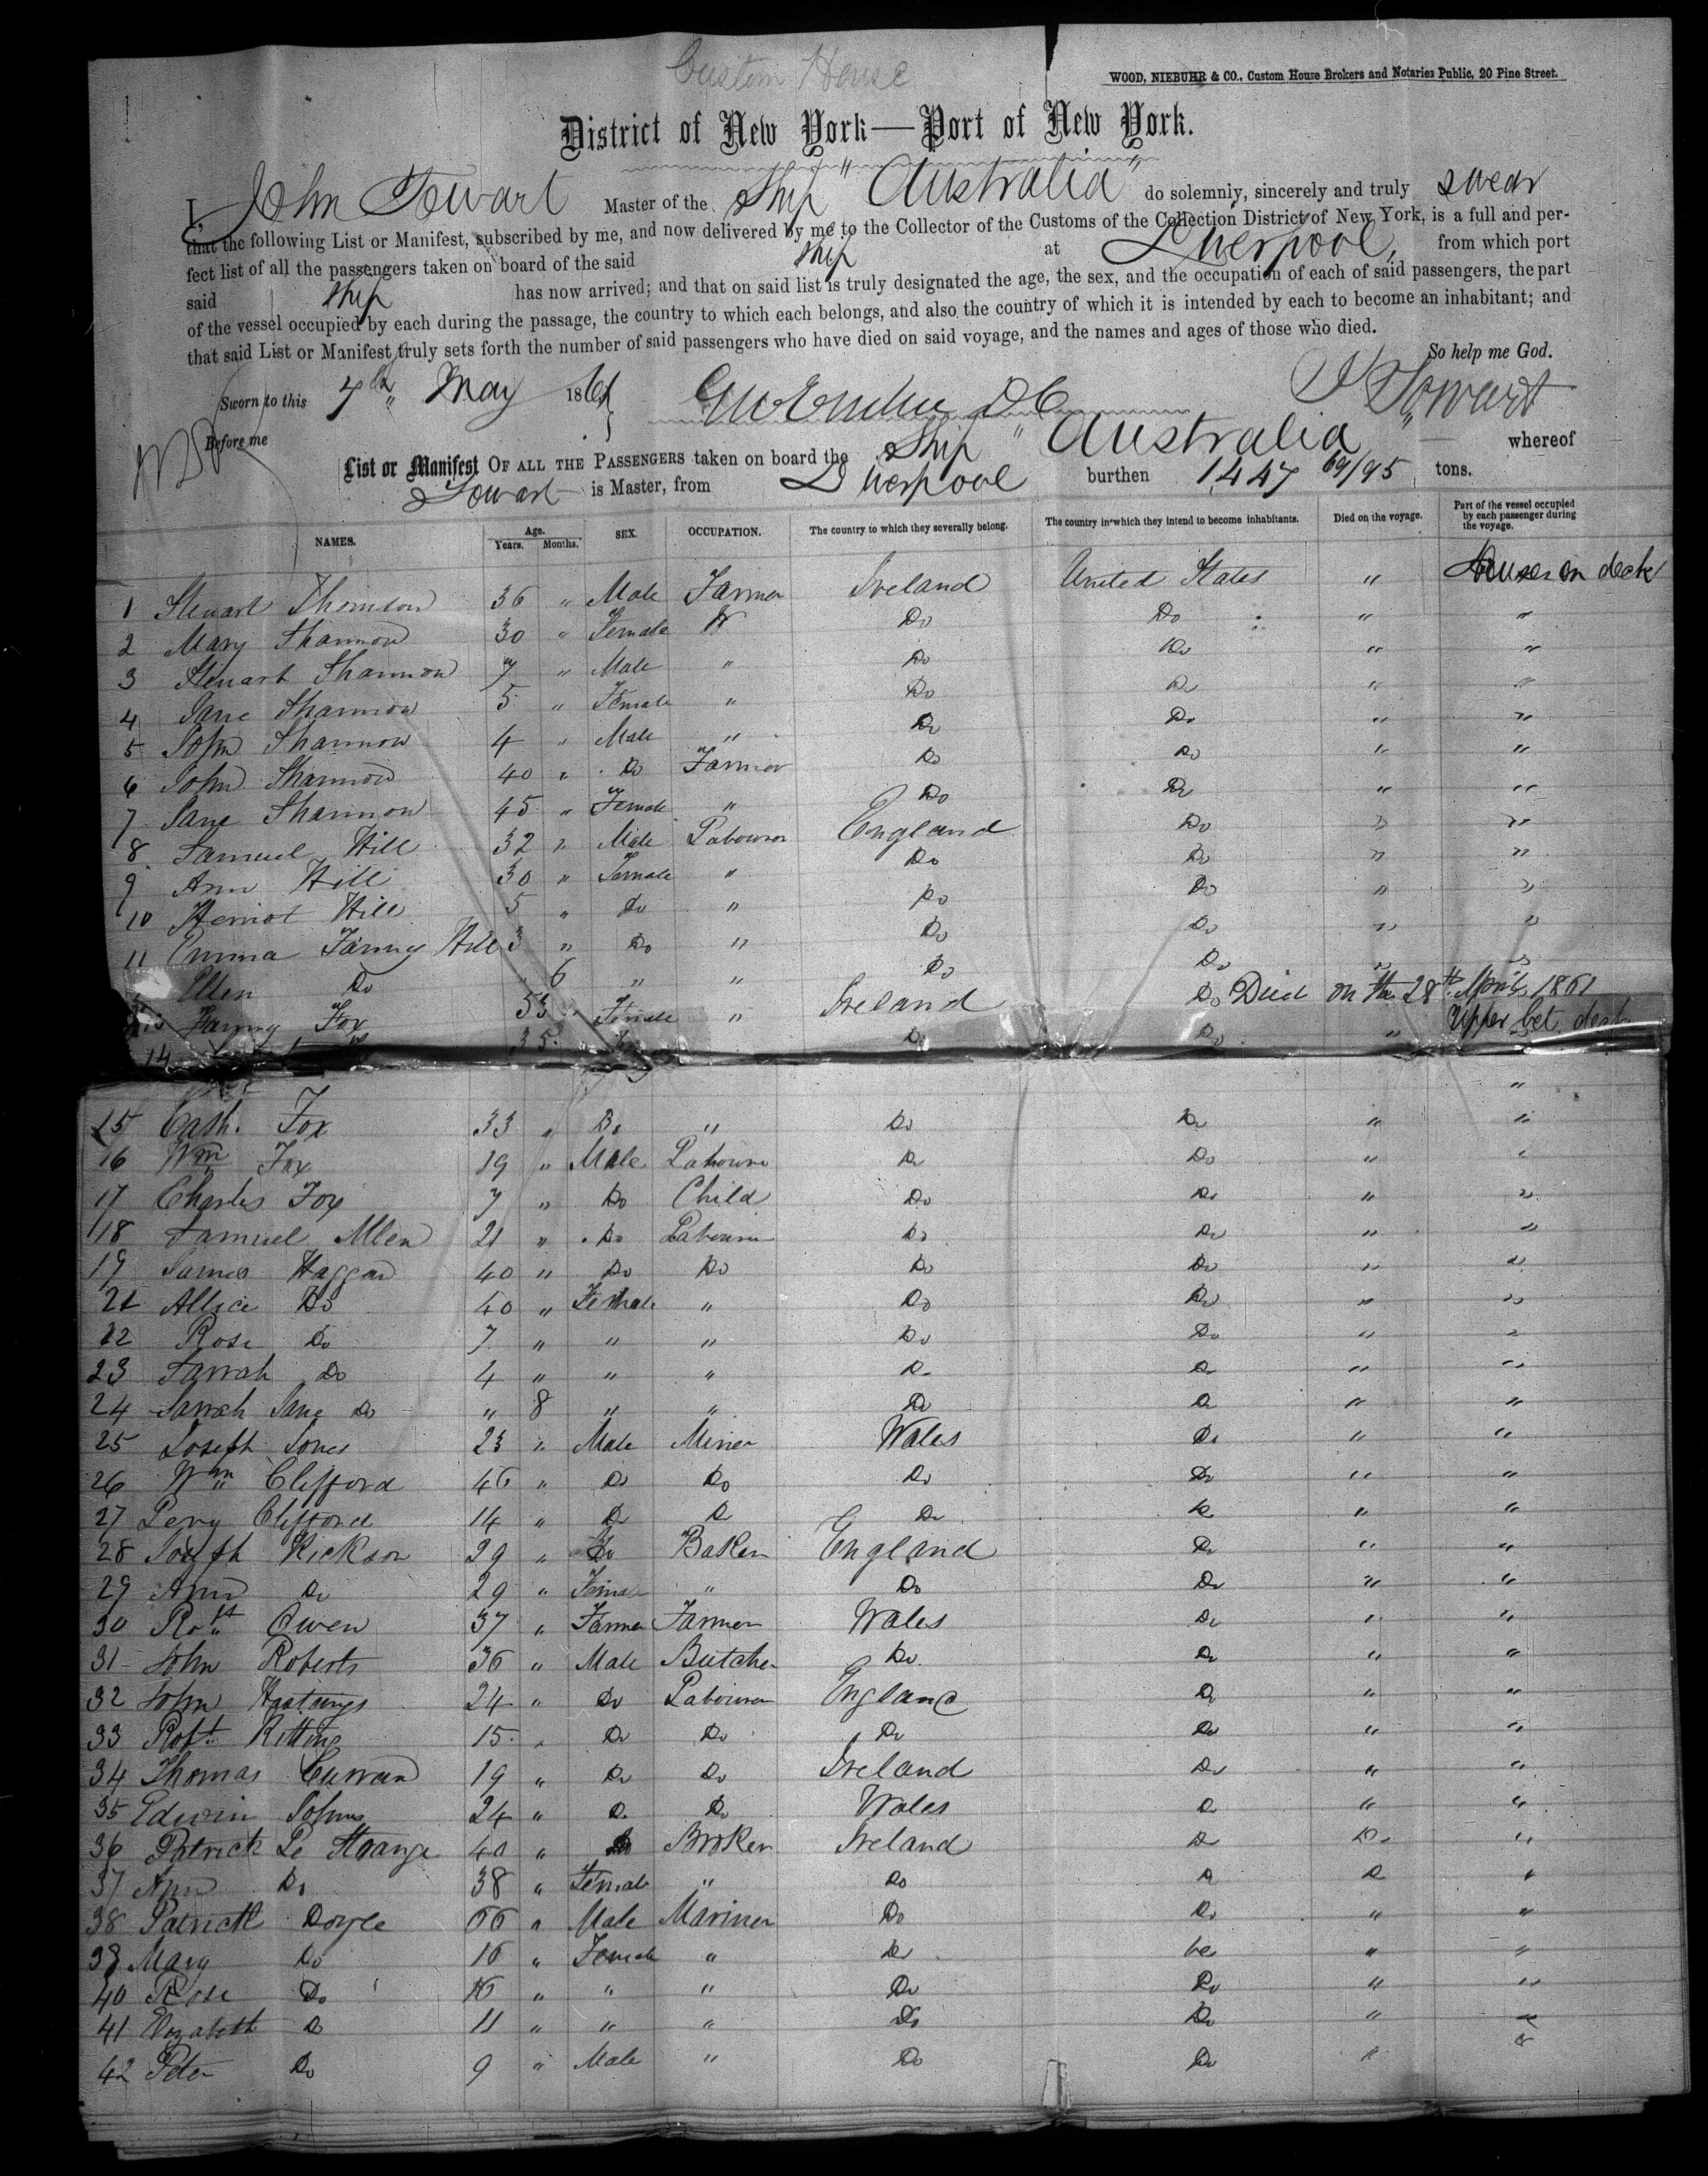 Custom House
WOOD, NIEBUHR & CO., Custom House Brokers and Notaries Public, 20 Pine Street.
District of New York—Port of New York.
I, John Stewart Master of the Ship "Australia" do solemnly, sincerely and truly swear
that the following List or Manifest, subscribed by me, and now delivered by me to the Collector of the Customs of the Collection District of New York, is a full and per-
fect list of all the passengers taken on board of the said ship at Liverpool, from which port
said ship has now arrived; and that on said list is truly designated the age, the sex, and the occupation of each of said passengers, the part
of the vessel occupied by each during the passage, the country to which each belongs, and also the country of which it is intended by each to become an inhabitant; and
that said List or Manifest truly sets forth the number of said passengers who have died on said voyage, and the names and ages of those who died.
So help me God.
Sworn to this 7th May 1861
Before me
List or Manifest OF ALL THE PASSENGERS taken on board the Ship "Australia" whereof
Stewart is Master, from Liverpool burthen 1,447 69/95 tons.
NAMES. Age. Years. Months. SEX. OCCUPATION. The country to which they severally belong. The country in which they intend to become inhabitants. Died on the voyage. Part of the vessel occupied by each passenger during the voyage.
1 Stewart Thomson 36 " Male Farmer Ireland United States " House on deck
2 Mary Shannon 30 " Female Do Do " "
3 Stewart Shannon 7 " Male " Do Do " "
4 Jane Shannon 5 " Female " Do Do " "
5 John Shannon 4 " Male " Do Do " "
6 John Shannon 40 " Do Farmer Do Do " "
7 Jane Shannon 45 " Female " Do Do " "
8 Samuel Hill 32 " Male Labourer England Do " "
9 Ann Hill 30 " Female " Do Do " "
10 Herriot Hill 5 " Do " Do Do " "
11 Emma Fanny Hill 3 " Do " Do Do " "
Ellen Do 6 " " Do Do " "
13 Fanny Fox 53 " Female " Ireland Do Died on the 28th April 1861
14 35 Do Do " Upper bet deck
15 Cath. Fox 33 " Do " Do Do " "
16 Wm Fox 19 " Male Labourer Do Do " "
17 Charles Fox 7 " Do Child Do Do " "
18 Samuel Allen 21 " Do Labourer Do Do " "
19 James Haggan 40 " Do Do Do Do " "
21 Allice Do 40 " Female " Do Do " "
22 Rose Do 7 " " " Do Do " "
23 Sarrah Do 4 " " " Do Do " "
24 Sarrah Jane Do " 8 " " Do Do " "
25 Joseph Jones 23 " Male Miner Wales Do " "
26 Wm Clifford 46 " Do Do Do Do " "
27 Percy Clifford 14 " Do Do Do Do " "
28 Joseph Kickson 29 " Do Baker England Do " "
29 Ann Do 29 " Female " Do Do " "
30 Robt Owen 37 " Farmer Farmer Wales Do " "
31 John Roberts 36 " Male Butcher Do Do " "
32 John Hastings 24 " Do Labourer England Do " "
33 Robt Kitting 15 " Do Do Do Do " "
34 Thomas Curran 19 " Do Do Ireland Do " "
35 Edwin Johns 24 " Do Do Wales Do " "
36 Patrick Le Strange 40 " Do Broker Ireland Do Do "
37 Ann Do 38 " Female " Do Do Do "
38 Patrick Doyle 66 " Male Mariner Do Do " "
39 Mary Do 16 " Female " Do Do " "
40 Rose Do 16 " " " Do Do " "
41 Elizabeth Do 11 " " " Do Do " "
42 Peter Do 9 " Male " Do Do " "